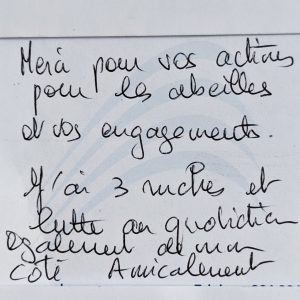 Merci pour vos actions
pour les abeilles
et vos engagements.
J'ai 3 ruches et
lutte au quotidien
également de mon
côté Amicalement